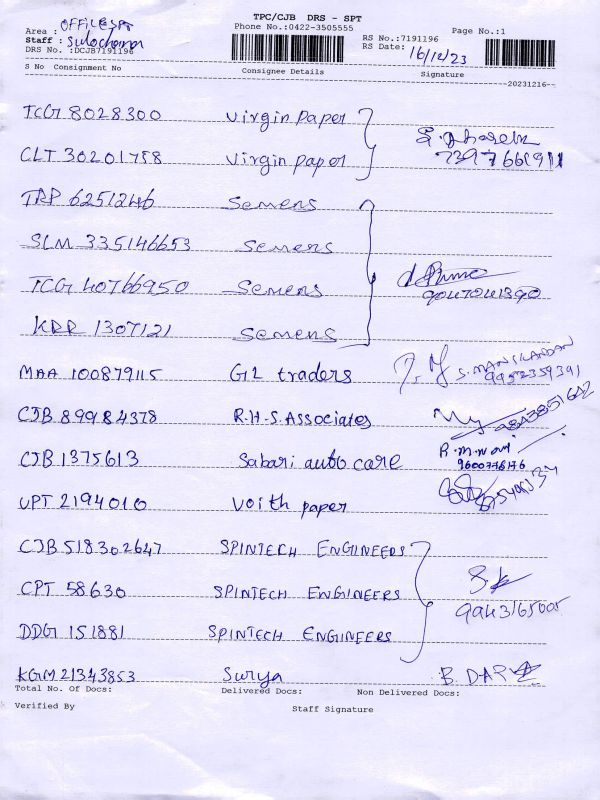 TPC/CJB DRS - SPT
Phone No.:0422-3505555
Area : OFFICE SPT
Staff : Sulochana
DRS No. :DCJB7191196
RS No.:7191196
RS Date: 16/12/23
Page No.:1
S No Consignment No Consignee Details Signature
--20231216--
TCG 8028300 virgin paper
CLT 30201758 virgin paper 7397661911
TRP 6251246 Semens
SLM 335146653 Semens
TCG 40766950 Semens 9047041390
KRR 1307121 Semens
MAA 100879115 G2 traders S. MANIKANDAN
9952359391
CJB 89984378 R.H.S. Associates 9843851642
CJB 1375613 Sabari auto care R.m.
9600776176
UPT 2194010 Voith paper
CJB 518302647 SPINTECH ENGINEERS
CPT 58630 SPINTECH ENGINEERS
9943165005
DDG 151881 SPINTECH ENGINEERS
KGM 21343853 Surya
Total No. Of Docs: Delivered Docs: Non Delivered Docs:
Verified By Staff Signature